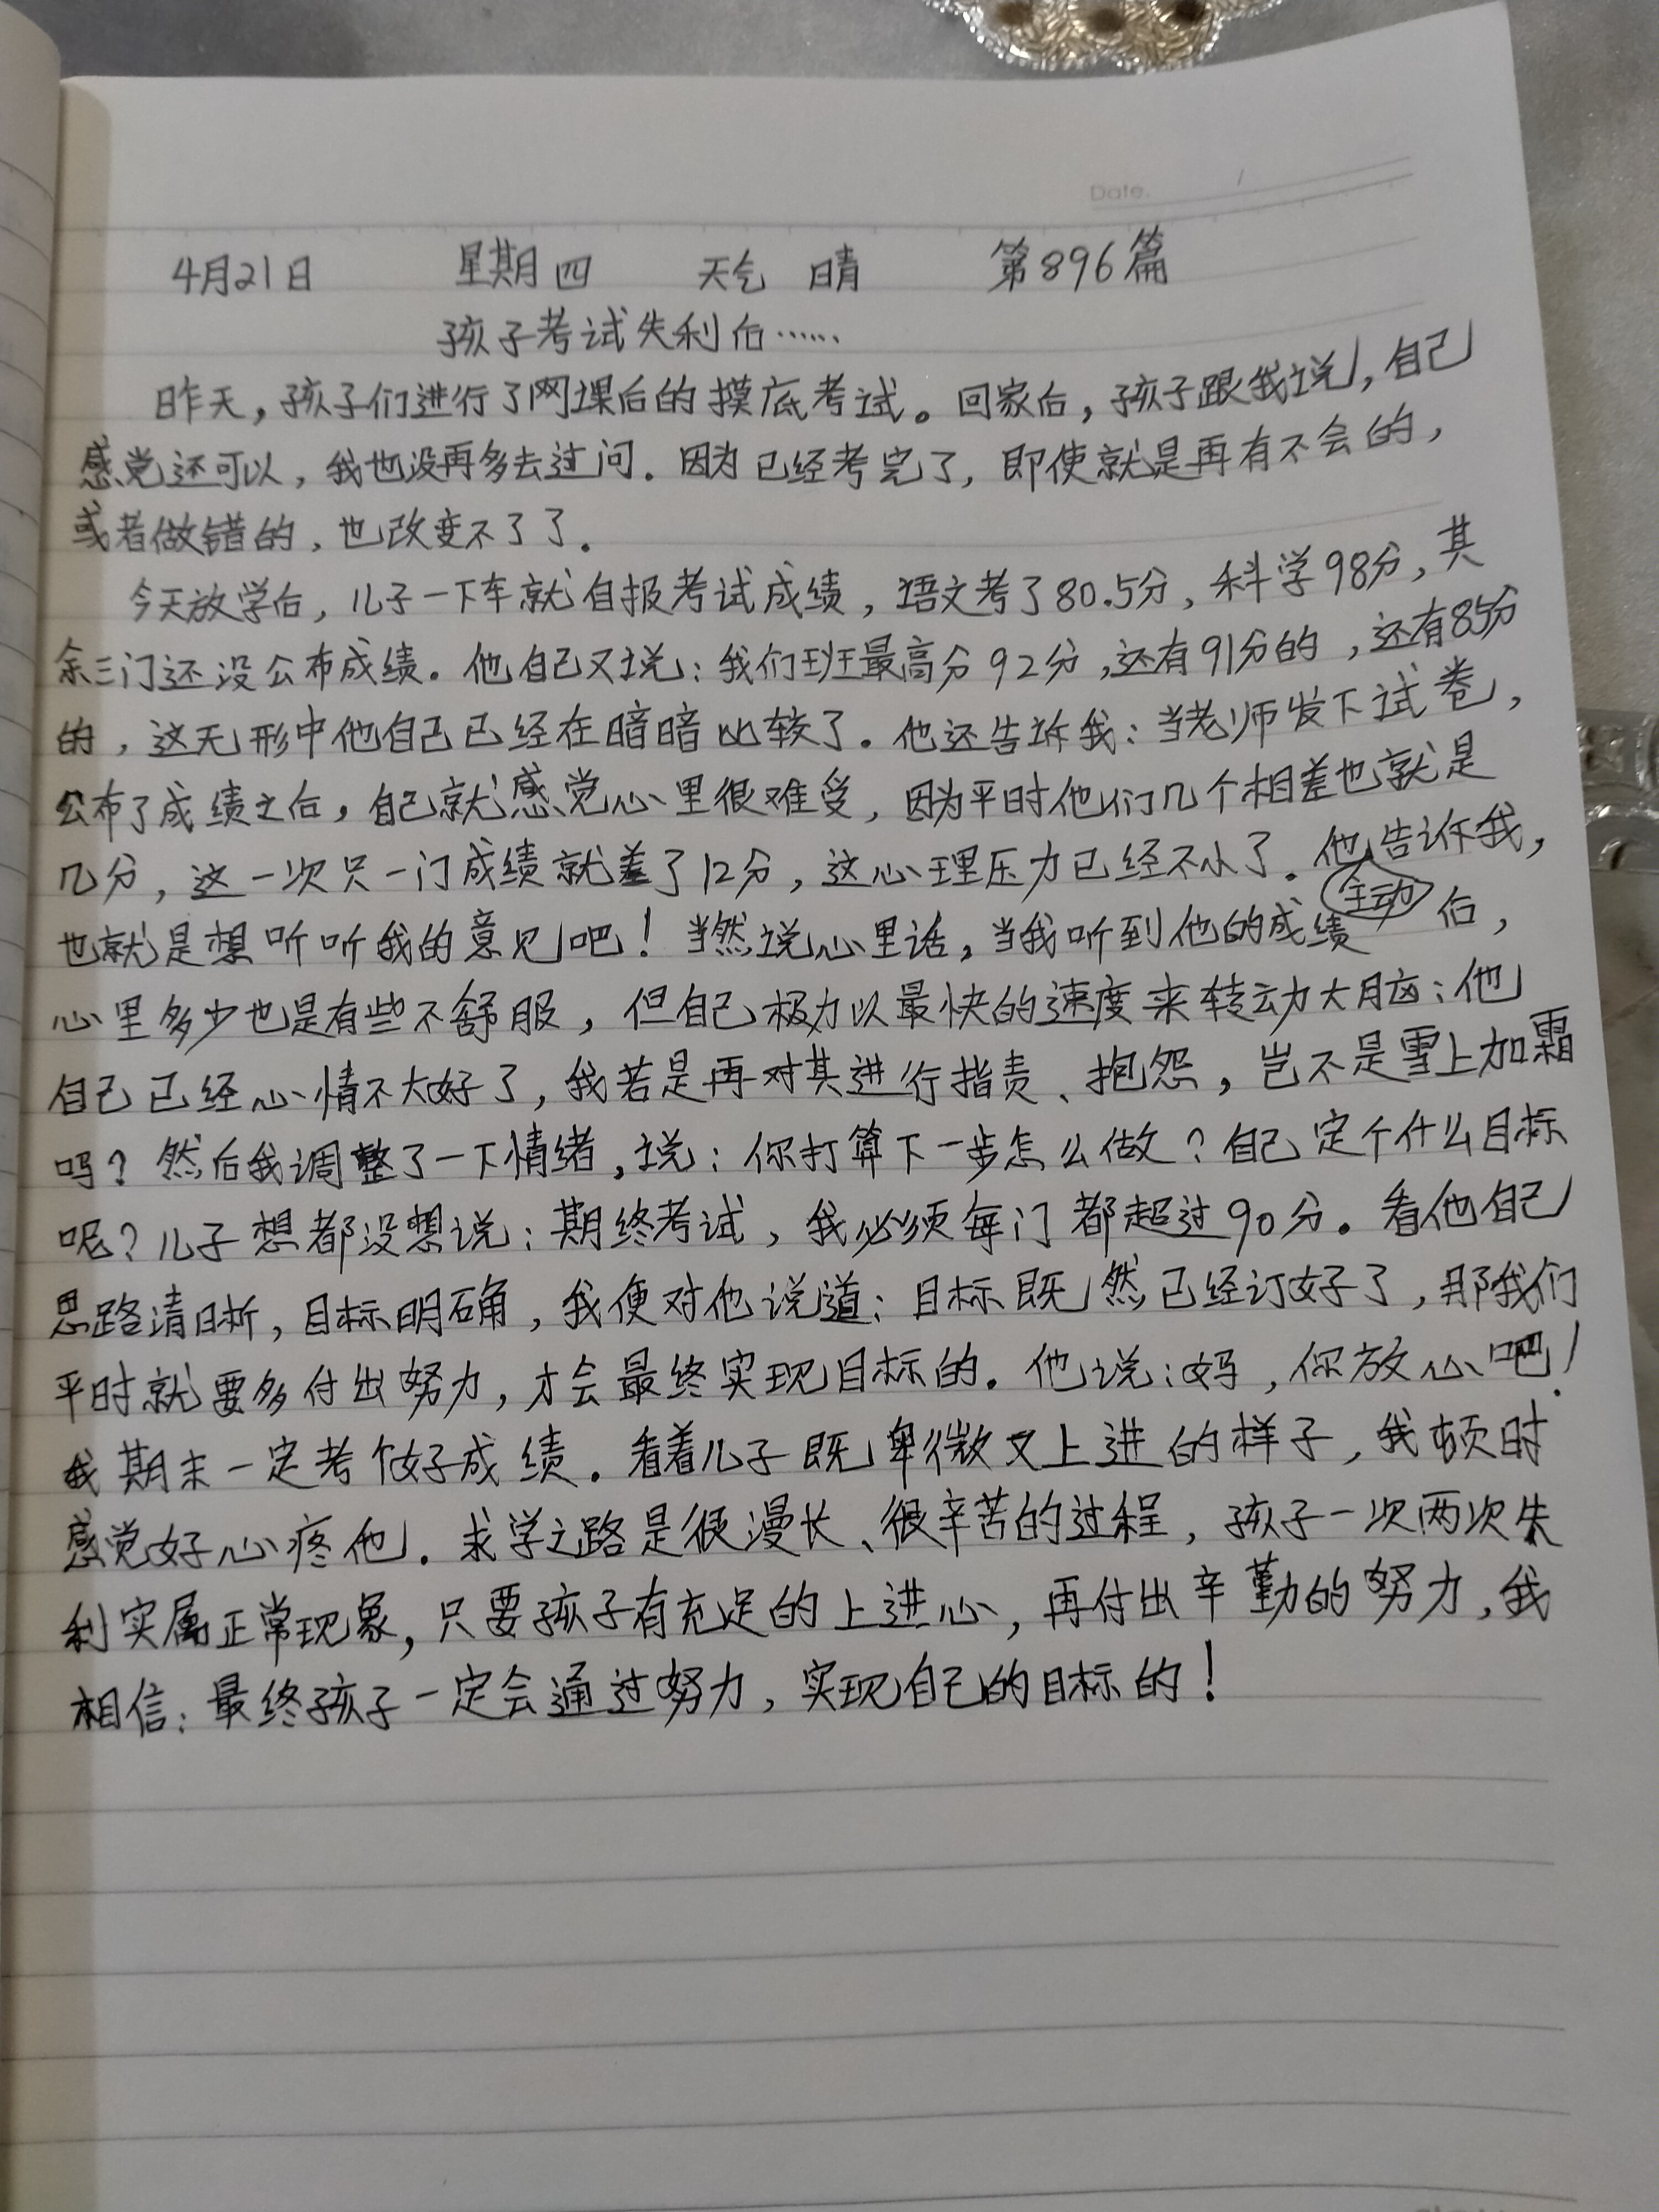 Date.
4月21日 星期四 天气 晴 第896篇
孩子考试失利后……
昨天，孩子们进行了网课后的摸底考试。回家后，孩子跟我说，自己
感觉还可以，我也没再多去过问．因为已经考完了，即使就是再有不会的，
或者做错的，也改变不了了．
今天放学后，儿子一下车就自报考试成绩，语文考了80.5分，科学98分，其
余三门还没公布成绩。他自己又说：我们班最高分92分，还有91分的，还有85分
的，这无形中他自己已经在暗暗比较了。他还告诉我：当老师发下试卷，
公布了成绩之后，自己就感觉心里很难受，因为平时他们几个相差也就是
几分，这一次只一门成绩就差了12分，这心理压力已经不小了．他主动告诉我，
也就是想听听我的意见吧！当然说心里话，当我听到他的成绩后，
心里多少也是有些不舒服，但自己极力以最快的速度来转动大脑：他
自己已经心情不太好了，我若是再对其进行指责、抱怨，岂不是雪上加霜
吗？然后我调整了一下情绪，说：你打算下一步怎么做？自己定个什么目标
呢？儿子想都没想说：期终考试，我必须每门都超过90分。看他自己
思路清晰，目标明确，我便对他说道：目标既然已经订好了，那我们
平时就要多付出努力，才会最终实现目标的．他说：妈，你放心吧！
我期末一定考个好成绩．看着儿子既卑微又上进的样子，我顿时
感觉好心疼他．求学之路是很漫长、很辛苦的过程，孩子一次两次失
利实属正常现象，只要孩子有充足的上进心，再付出辛勤的努力，我
相信：最终孩子一定会通过努力，实现自己的目标的！